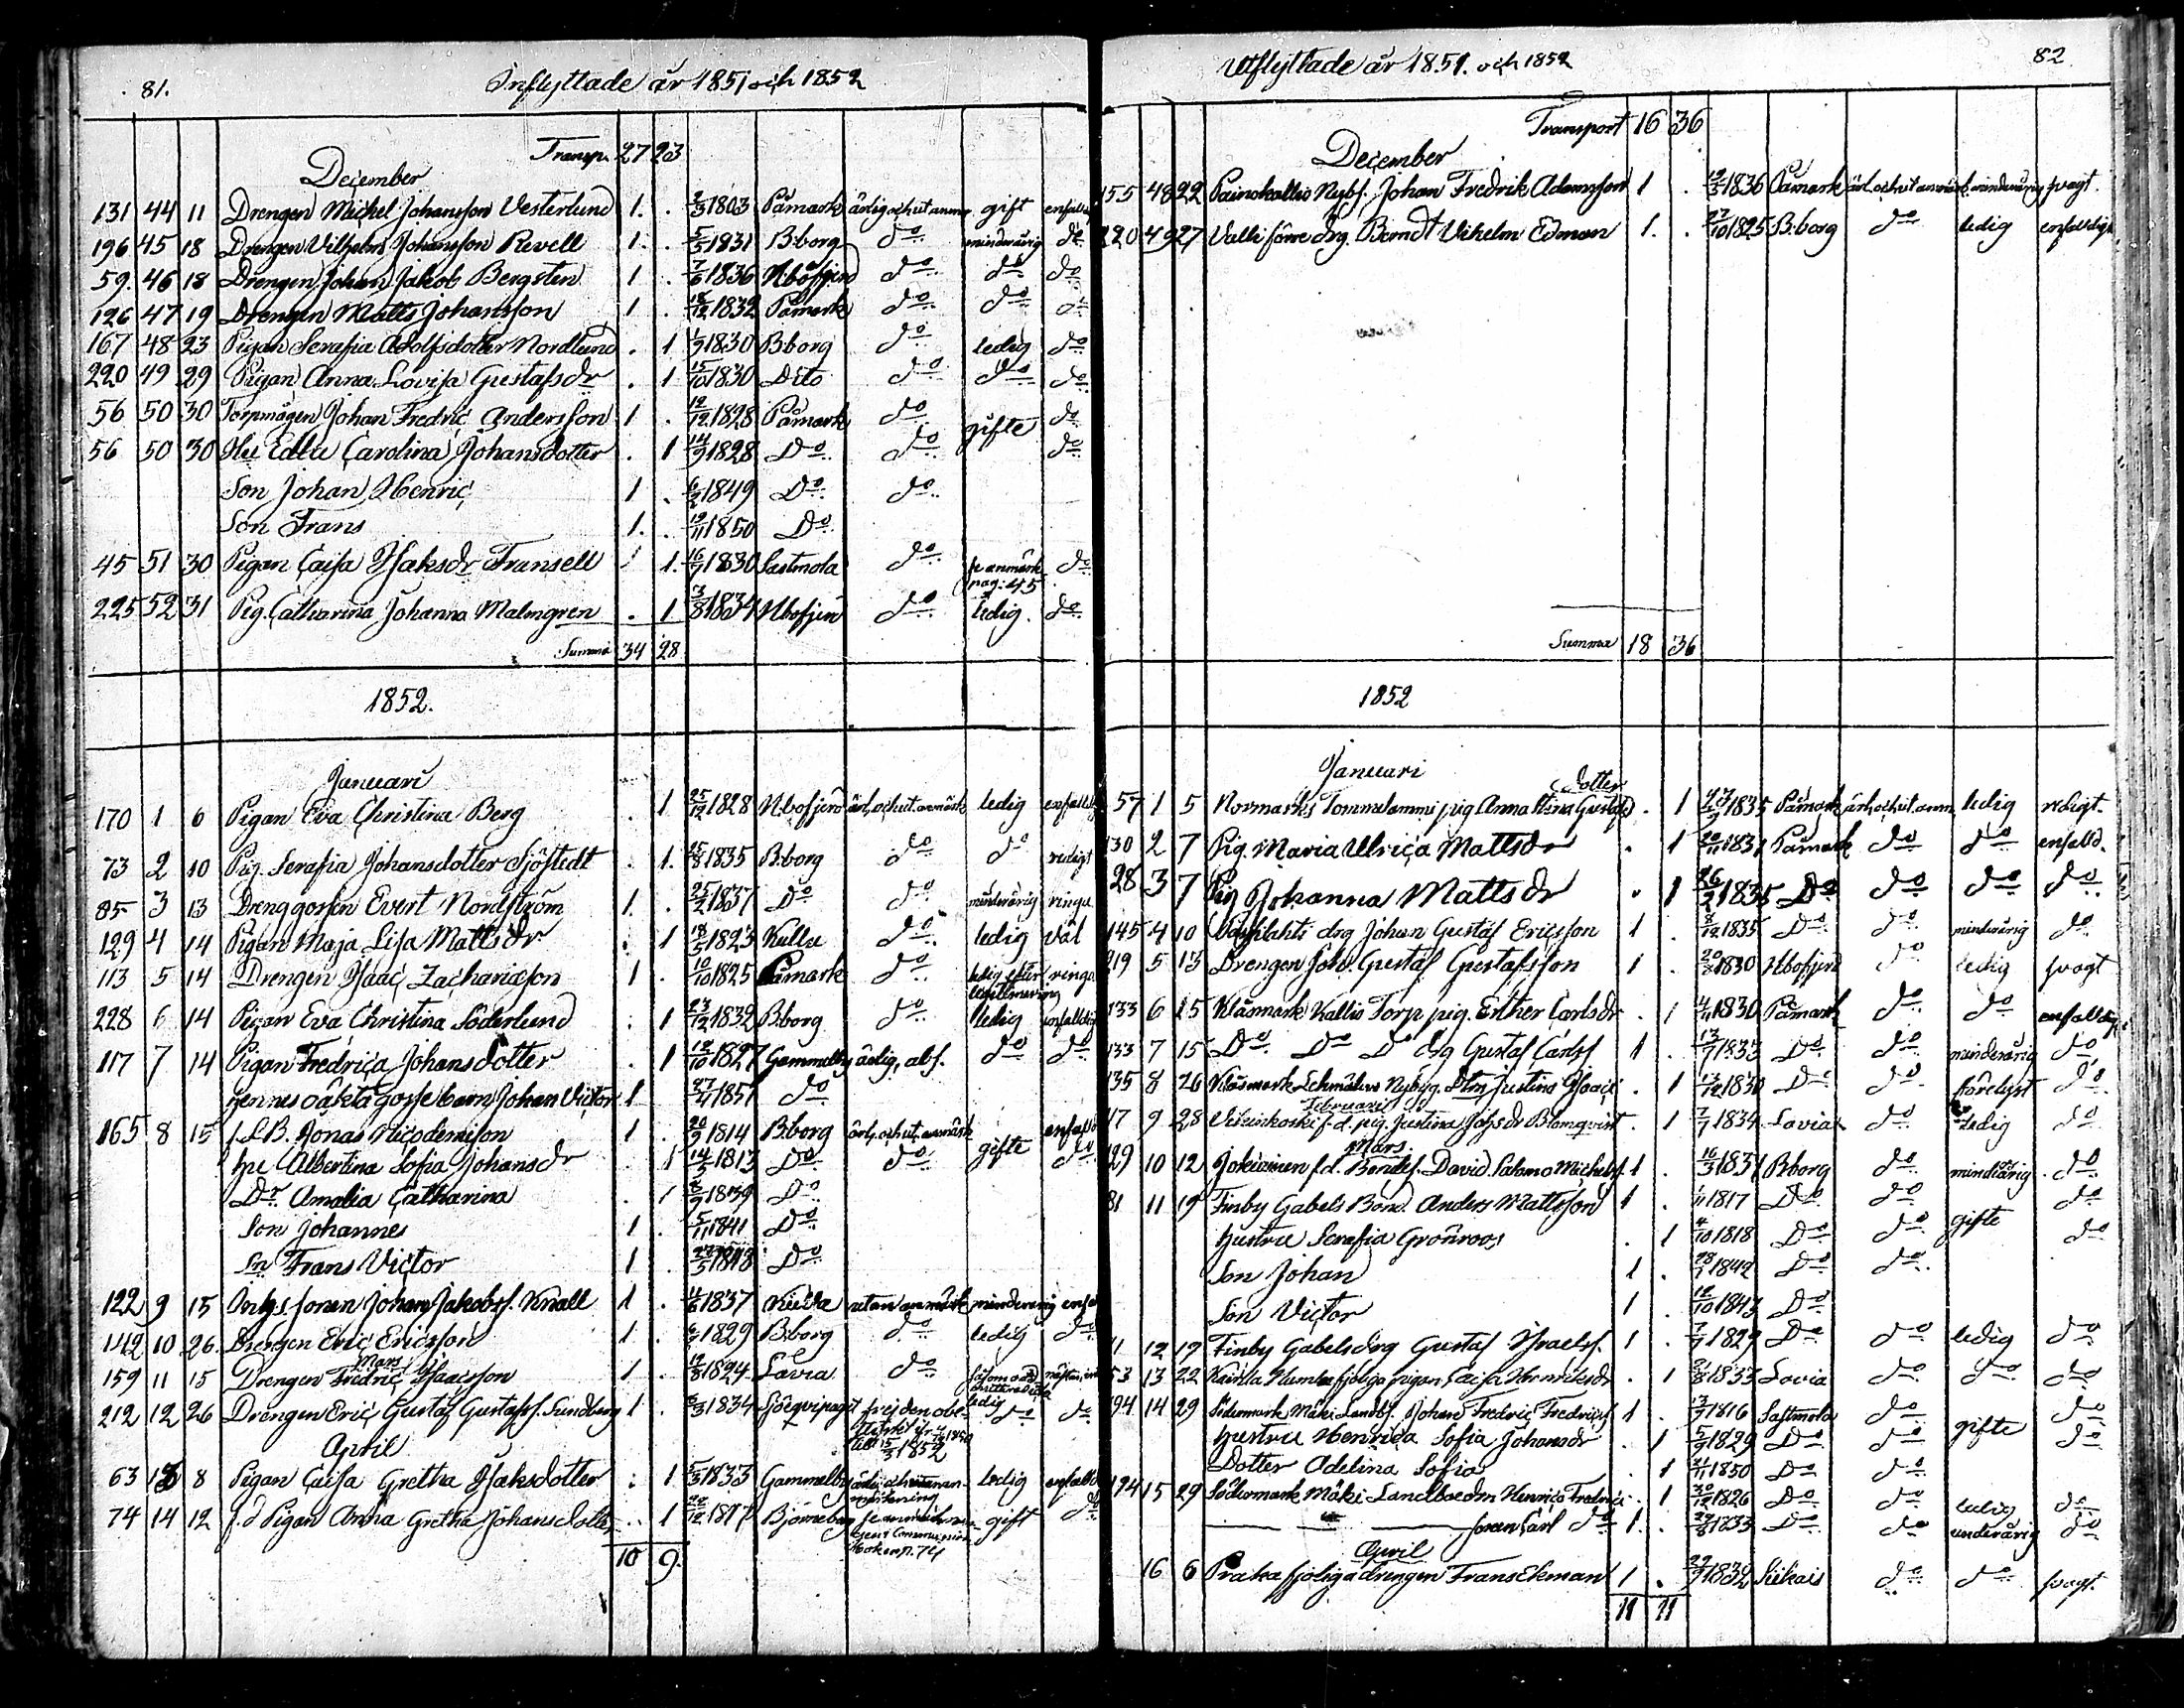 81.
Inflyttade år 1851 och 1852
Transp. 27 23
December
131 44 11 Drengen Michel Johansson Vesterlund 1. . 1803 Påmark ärlig och ut anm gift enfald
196 45 18 Drengen Vilhelm Johansson Revell 1. . 5/5 1831 B:borg do minderårig do
59. 46 18 Drengen Johan Jakob Bergsten 1 . 7/6 1836 do do do
126 47 19 Drengen Matts Johansson 1 . 1832 Påmark do do do
167 48 23 Pigan Serafia Adolfsdotter Nordlund . 1 1/9 1830 B:borg do ledig do
220 49 29 Pigan Anna Lovisa Gustafsdr . 1 15/10 1830 Dito do do do
56 50 30 Torpmågen Johan Fredric Andersson 1 . 1828 Påmark do gifte do
56 50 30 Hu Edla Carolina Johansdotter . 1 14/9 1828 Do do do
Son Johan Henric 1 . 6/2 1849 Do do
Son Frans 1. . 1850 Do
45 51 30 Pigan Caisa Isaksdr Fransell 1. 16/7 1830 Sastmola do se anmärk pag: 45 do
225 52 31 Pig. Catharina Johanna Malmgren . 1 3/8 1834 do ledig. do
Summa 34 28
1852.
Januari
170 1 6 Pigan Eva Christina Berg . 1 25/12 1828 ärl, och ut. anmärk ledig enfaldig
73 2 10 Pig. Serafia Johansdotter Sjöstedt . 1. 1835 B:borg do do redigt
85 3 13 Drenggossen Evert Nordström 1. . 25/2 1837 Do do minderårig ringa
129 4 14 Pigan Maja Lisa Mattsdr . 1 18/5 1823 Kulla do ledig väl
113 5 14 Drengen Isaac Zachariasson 1 . 10/10 1825 Påmark do ledig efter ringa
228 6 14 Pigan Eva Christina Söderlund . 1 23/12 1832 B:borg do ledig enfaldig
117 7 14 Pigan Fredrica Johansdotter . 1 1827 Gammelby ärlig, abs. do do
hennes oäkta gosse barn Johan Victor 1 1851 do
165 8 15 Jonas Nicodemison 1 . 20/9 1814 B:borg ärl. och ut. anmärk gifte enfald
hu Albertina Sofia Johansdr . 1 14/5 1813 Do do do
Dr Amalia Catharina . 1 1839 Do
Son Johannes 1 . 5/11 1841 Do
Sn Frans Victor 1 . 1848 Do
122 9 15 Inhys. sonen Johan Jakobss. Knall 1 . 1837 utan anmärk minderårig enf
142 10 26. Drengen Eric Ericsson 1. . 1829 B:borg do ledig do
Mars
159 11 15 Drengen Fredric Isacsson 1 . 1824 Lavia do
212 12 26 Drengen Eric Gustaf Gustafss. Sundberg 1 . 6/3 1834 ledig do do
1852
April
63 13 8 Pigan Caisa Gretha Isaksdotter . 1 5/3 1833 Gammelby ledig enfald
74 14 12 f.d Pigan Anna Gretha Johansdotter . 1 1817 Björneborg gift do
10 9.
Utflyttade år 1851. och 1852
82
Transport 16 36
December
155 48 22 Painokallio Nybs. Johan Fredrik Adamsson 1 . 1836 Påmark ärl. och ut anmärk. minderårig svagt.
220 49 27 drg. Berndt Vilhelm Edman 1. . 27/10 1825 B:borg do ledig enfaldigt
Summa 18 36
1852
Januari
57 1 5 Normarks pig Anna Gustafsdotter . 1 1835 Påmark ärl. och ut anm ledig redigt.
130 2 7 Pig. Maria Ulrica Mattsdr . 1 20/11 1831 Påmark do do enfald.
28 3 7 Pig Johanna Mattsdr . 1 26/2 1835 Do do do do
145 4 10 drg Johan Gustaf Ericsson 1 . 8/12 1835 Do do minderårig do
219 5 13 Drengen Joh. Gustaf Gustafsson 1 . 1830 do ledig svagt
133 6 15 Klåsmark Kallio Torp pig. Esther Carlsdr . 1 1830 Påmark do do enfaldigt
133 7 15 Do Do Do drg Gustaf Carlss 1 . 1833 Do do minderårig do
135 8 26 Klåsmark Justina Isaacs . 1 1830 Do do do
Februari
47 9 28 pig. Justina Johsdr Blomqvist . 1 7/7 1834 Lavia do ledig do
Mars
129 10 12 f.d. David Salomo Michelss. 1 . 16/3 1831 B:borg do minderårig do
81 11 19 Finby Gabels Bond. Anders Mattsson 1 . 1/11 1817 Do do gifte do
hustru Serafia Grönroos . 1 4/10 1818 Do do do
Son Johan 1 . 28/7 1842 Do do
Son Victor 1 . 12/10 1843 Do
12 19 Finby Gabels drg Gustaf Israelss. 1 . 1829 Do do ledig do
53 13 22 pigan Caisa Henriksdr . 1 21/8 1833 Lavia do do do
194 14 29 Södermark Mäki Landbf. Johan Fredric Fredricss 1 . 1816 Sastmola do gifte do
hustru Henrica Sofia Johansdr . 1 5/9 1829 Do do do
Dotter Adelina Sofia . 1 21/11 1850 Do do
194 15 29 Södermark Mäki Henrica Fredrics . 1 30/12 1826 Do do ledig do
sonen Carl do 1. . 1833 Do do minderårig do
April
16 6 drengen Frans Ekman 1 . 1832 Siikais do do svagt.
11 11